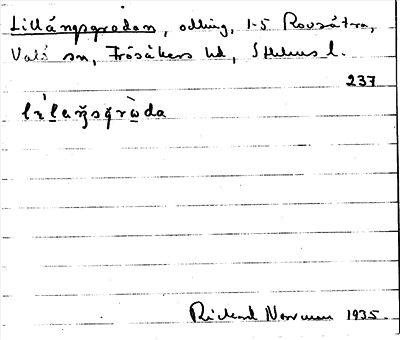 Lillängsgrodan, odling, 1-5 Rovsätra,
Valö sn, Frösåkers hd, Sthlms l.
237
Richard Norrman 1935.